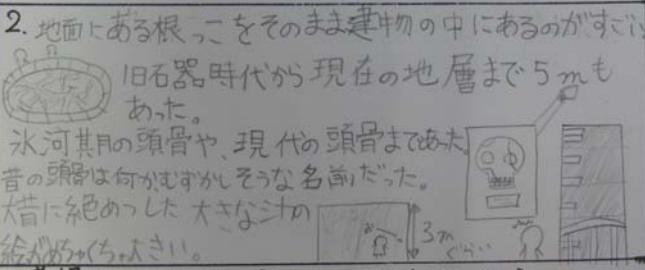 2. 地面にある根っこをそのまま建物の中にあるのがすごい
旧石器時代から現在の地層まで5mも
あった。
氷河期の頭骨や、現代の頭骨まであった。
昔の頭骨は何かむずかしそうな名前だった。
大昔に絶めつした大きな
絵がめちゃくちゃ大きい。
3m
ぐらい